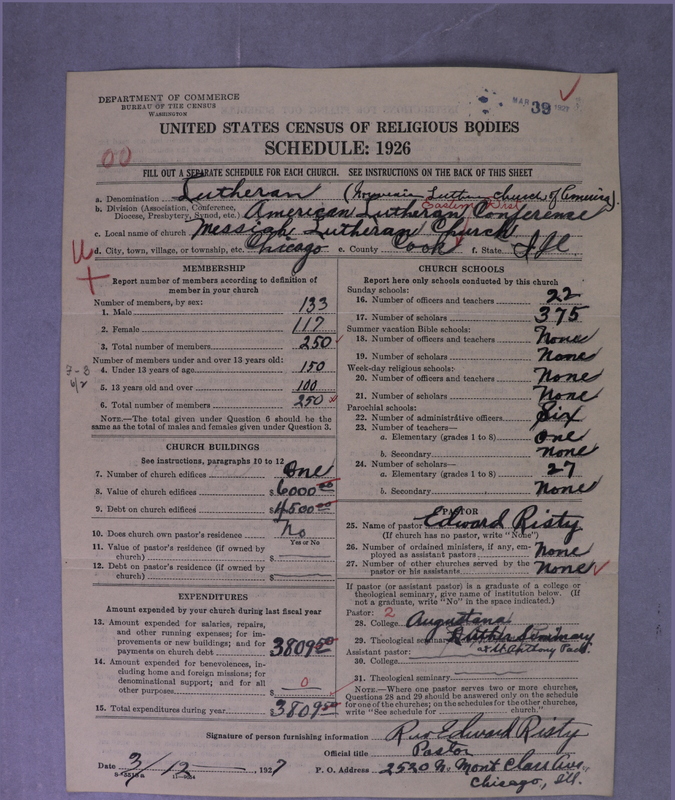 DEPARTMENT OF COMMERCE
BUREAU OF THE CENSUS
WASHINGTON
MAR 39 1927
UNITED STATES CENSUS OF RELIGIOUS BODIES
SCHEDULE: 1926
00
FILL OUT A SEPARATE SCHEDULE FOR EACH CHURCH. SEE INSTRUCTIONS ON THE BACK OF THIS SHEET
a. Denomination Lutheran (Norwegian Lutheran Church of America).
b. Division (Association, Conference, Diocese, Presbytery, Synod, etc.) American Lutheran Conference Eastern Dist
c. Local name of church Messiah Lutheran Church
d. City, town, village, or township, etc. Chicago e. County Cook f. State Ill.
MEMBERSHIP
Report number of members according to definition of
member in your church
Number of members, by sex:
1. Male 133
2. Female 117
3. Total number of members 250
Number of members under and over 13 years old:
4. Under 13 years of age 150
5. 13 years old and over 100
6. Total number of members 250
NOTE.—The total given under Question 6 should be the
same as the total of males and females given under Question 3.
CHURCH BUILDINGS
See instructions, paragraphs 10 to 12
7. Number of church edifices One
8. Value of church edifices $6000.00
9. Debt on church edifices $4500.00
10. Does church own pastor's residence No
Yes or No
11. Value of pastor's residence (if owned by
church) $
12. Debt on pastor's residence (if owned by
church) $
EXPENDITURES
Amount expended by your church during last fiscal year
13. Amount expended for salaries, repairs,
and other running expenses; for im-
provements or new buildings; and for
payments on church debt 3809.00
14. Amount expended for benevolences, in-
cluding home and foreign missions; for
denominational support; and for all
other purposes $ 0
15. Total expenditures during year 3809.00
CHURCH SCHOOLS
Report here only schools conducted by this church
Sunday schools:
16. Number of officers and teachers 22
17. Number of scholars 375
Summer vacation Bible schools:
18. Number of officers and teachers None
19. Number of scholars None
Week-day religious schools:
20. Number of officers and teachers None
21. Number of scholars None
Parochial schools:
22. Number of administrative officers Six
23. Number of teachers—
a. Elementary (grades 1 to 8) One
b. Secondary None
24. Number of scholars—
a. Elementary (grades 1 to 8) 27
b. Secondary None
PASTOR
25. Name of pastor Edward Risty
(If church has no pastor, write "None")
26. Number of ordained ministers, if any, em-
ployed as assistant pastors None
27. Number of other churches served by the
pastor or his assistants None
If pastor (or assistant pastor) is a graduate of a college or
theological seminary, give name of institution below. (If
not a graduate, write "No" in the space indicated.)
Pastor: 2
28. College Augustana
29. Theological seminary Luther Seminary
at St Anthony Park.
Assistant pastor:
30. College
31. Theological seminary
NOTE.—Where one pastor serves two or more churches,
Questions 28 and 29 should be answered only on the schedule
for one of the churches; on the schedules for the other churches,
write "See schedule for church."
Signature of person furnishing information Rev Edward Risty
Official title Pastor
Date 3/12, 1927 P. O. Address 2520 N. Mont Clare Ave,
Chicago, Ill.